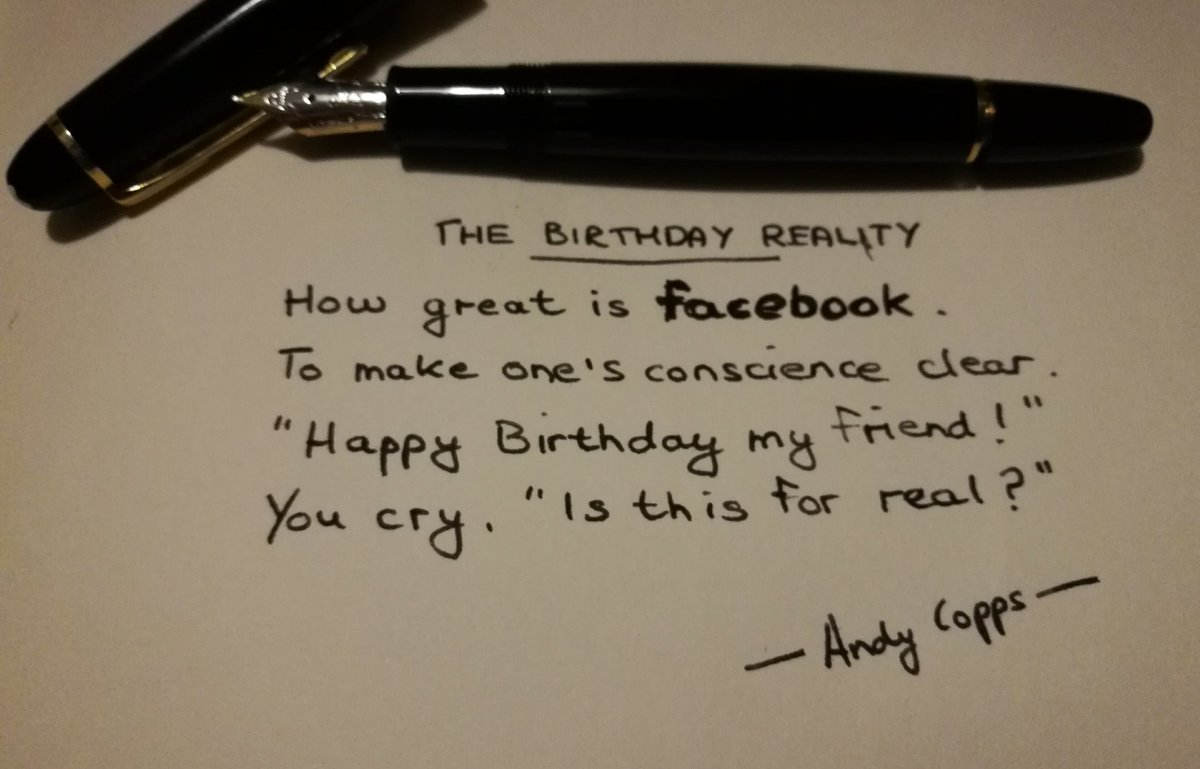 THE BIRTHDAY REALITY
How great is facebook.
To make one's conscience clear.
"Happy Birthday my friend!"
You cry. "Is this for real?"
— Andy Copps —